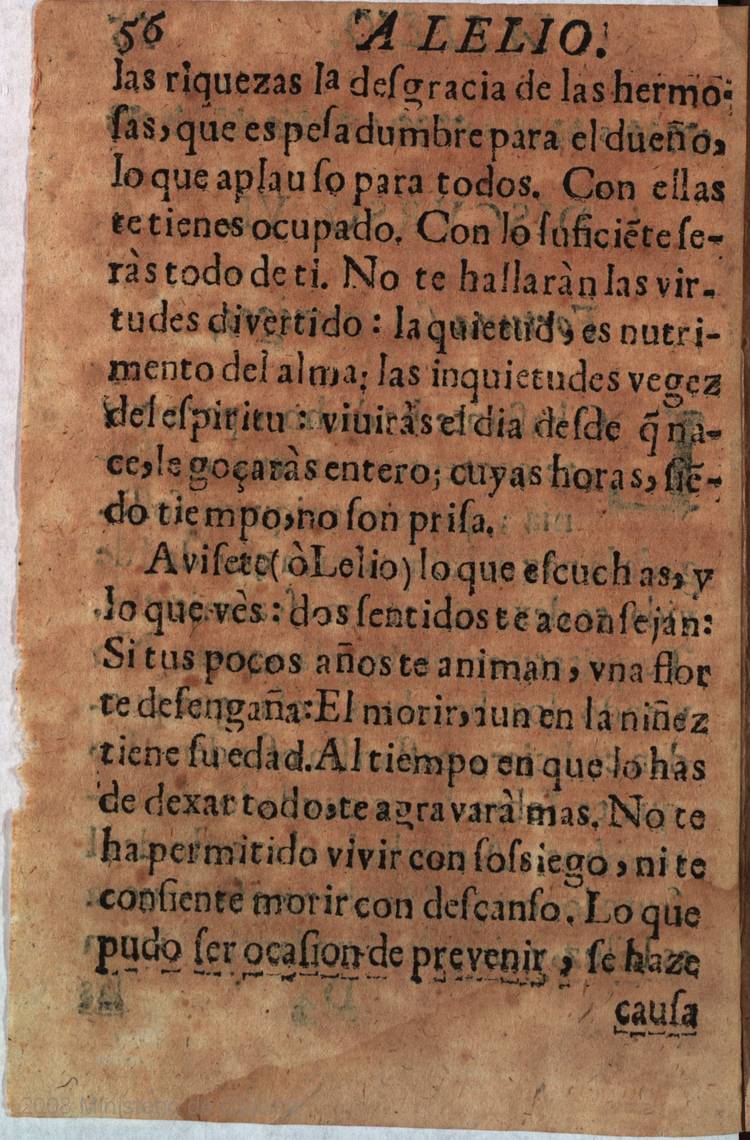 56 A LELIO.
las riquezas la desgracia de las hermo-
sas, que es pesadumbre para el dueño,
lo que aplauso para todos. Con ellas
te tienes ocupado. Con lo suficiẽte se-
ràs todo de ti. No te hallaràn las vir-
tudes divertido: la quietud, es nutri-
mento del alma; las inquietudes vegez
del espiritu: viuiràs el dia desde q̃ na-
ce, le goçaràs entero; cuyas horas, siẽ-
do tiempo, no son prisa.
Avisete (ò Lelio) lo que escuchas, y
lo que vès: dos sentidos te aconsejan:
Si tus pocos años te animan, vna flor
te desengaña: El morir, aun en la niñez
tiene su edad. Al tiempo en que lo has
de dexar todo, te agravarà mas. No te
ha permitido vivir con sossiego, ni te
consiente morir con descanso. Lo que
pudo ser ocasion de prevenir, se haze
causa